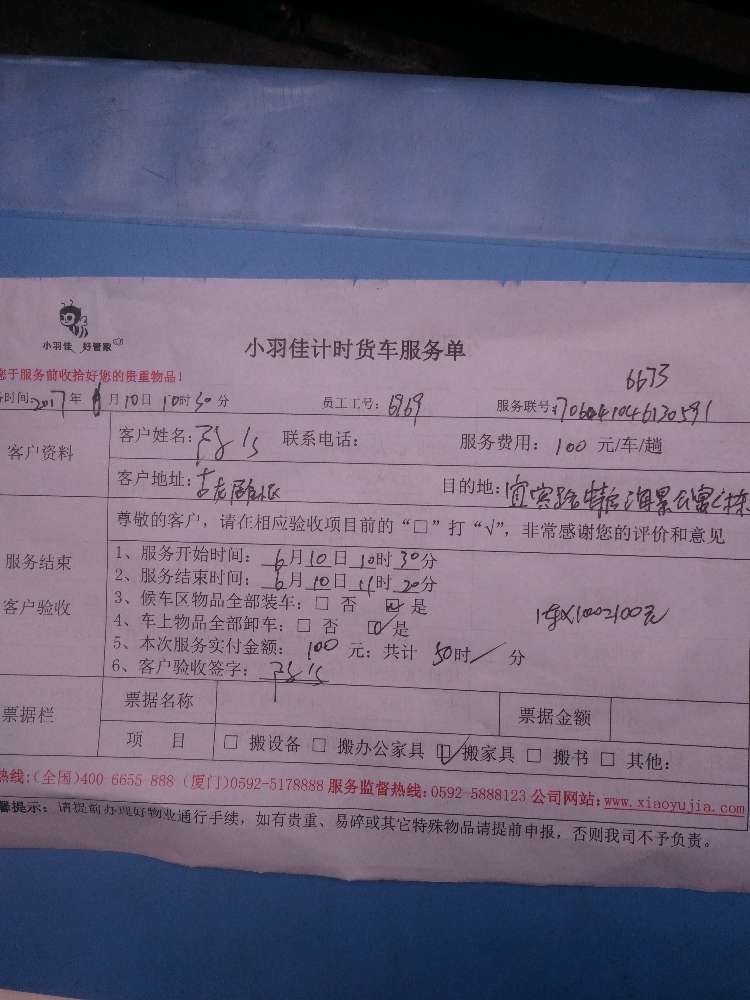 小羽佳 好管家
小羽佳计时货车服务单
您于服务前收拾好您的贵重物品！
6673
务时间:2017年6月10日10时30分 员工工号:6969 服务联号:
客户资料
客户姓名: 联系电话: 服务费用: 100 元/车/趟
客户地址: 目的地:
尊敬的客户，请在相应验收项目前的“□”打“√”，非常感谢您的评价和意见
服务结束
客户验收
1、服务开始时间: 6月10日10时30分
2、服务结束时间: 6月10日11时20分
3、候车区物品全部装车: □ 否 ☑ 是
4、车上物品全部卸车: □ 否 ☑ 是
5、本次服务实付金额: 100 元; 共计 50时/ 分
6、客户验收签字:
票据栏
票据名称 票据金额
项 目 □ 搬设备 □ 搬办公家具 ☑ 搬家具 □ 搬书 □ 其他:
热线:(全国)400-6655-888 (厦门)0592-5178888 服务监督热线:0592-5888123 公司网站:www.xiaoyujia.com
馨提示: 请提前办理好物业通行手续，如有贵重、易碎或其它特殊物品请提前申报，否则我司不予负责。